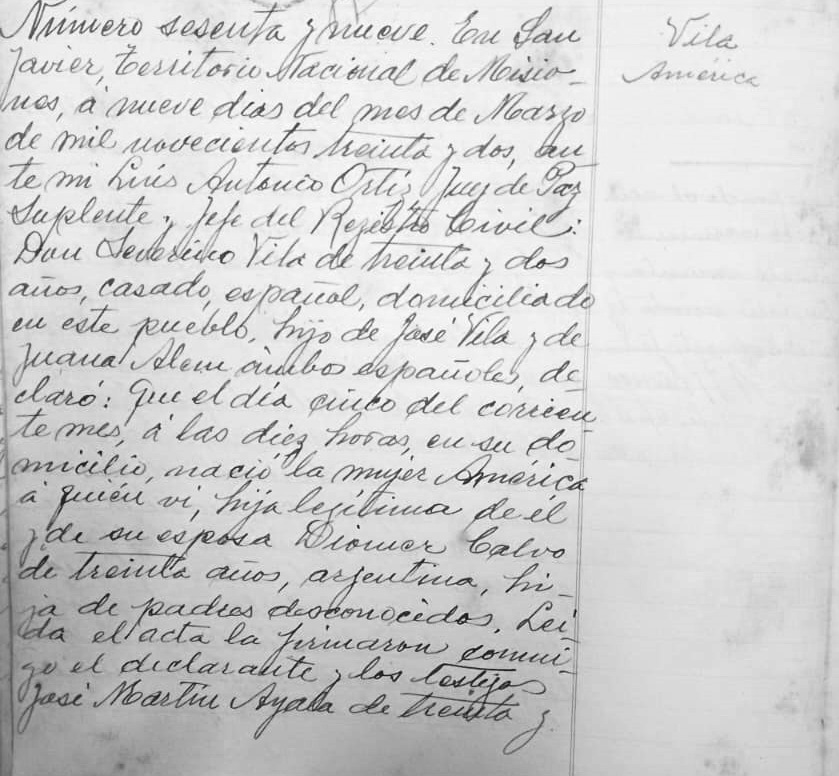 Número sesenta y nueve. En San
Javier, Territorio Nacional de Misio-
nes, á nueve dias del mes de Marzo
de mil novecientos treinta y dos, an
te mi Luis Antonio Ortiz Juez de Paz
Suplente y Jefe del Registro Civil:
Don Severino Vila de treinta y dos
años, casado, español, domiciliado
en este pueblo, hijo de José Vila y de
Juana Alem ámbos españoles, de-
claró: Que el día cinco del corrien
te mes, á las diez horas, en su do-
micilio, nació la mujer América
á quién vi, hija legítima de él
y de su esposa Diomer Calvo
de treinta años, argentina, hi-
ja de padres desconocidos. Lei-
da el acta la firmaron conmi-
go el declarante y los testigos
José Martin Ayala de treinta y
Vila
América